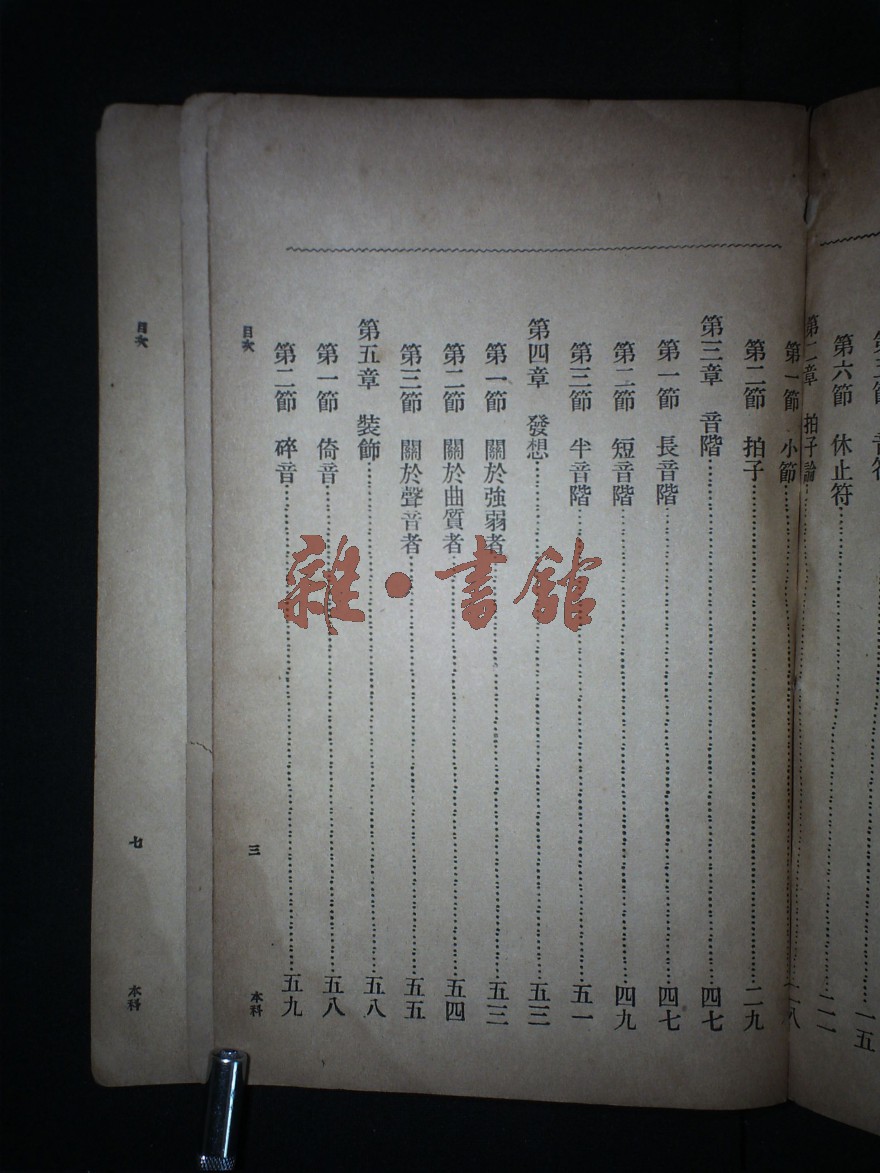 音符……一五
第六節　休止符……二一
第二章　拍子論
第一節　小節……二八
第二節　拍子……二九
第三章　音階……四七
第一節　長音階……四七
第二節　短音階……四九
第三節　半音階……五一
第四章　發想……五三
第一節　關於強弱者……五三
第二節　關於曲質者……五四
第三節　關於聲音者……五五
第五章　裝飾……五八
第一節　倚音……五八
第二節　碎音……五九
目次　三　本科
目次　七　本科
雜·書館